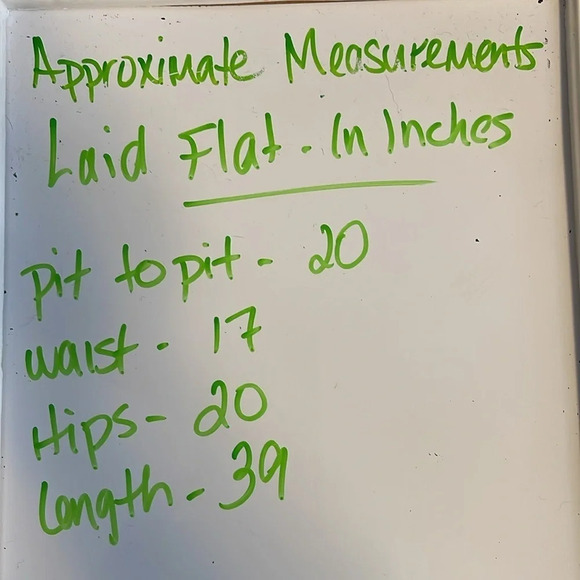 Approximate Measurements
Laid Flat - In Inches
pit to pit - 20
waist - 17
Hips - 20
Length - 39